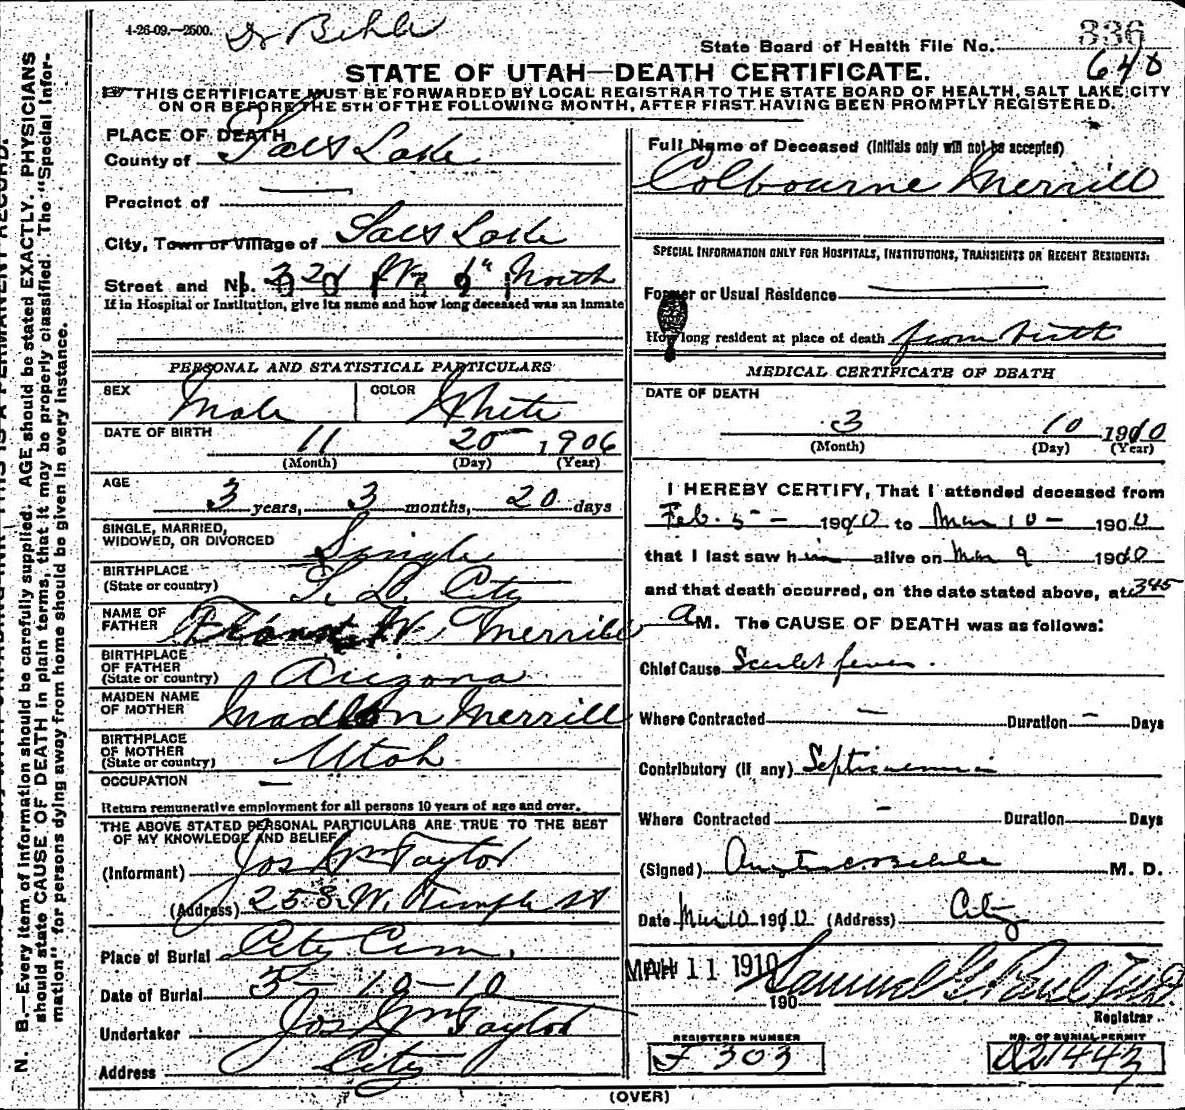 4-26-09.—2500. Dr Behle
State Board of Health File No. 336
640
STATE OF UTAH—DEATH CERTIFICATE.
THIS CERTIFICATE MUST BE FORWARDED BY LOCAL REGISTRAR TO THE STATE BOARD OF HEALTH, SALT LAKE CITY
ON OR BEFORE THE 5TH OF THE FOLLOWING MONTH, AFTER FIRST HAVING BEEN PROMPTLY REGISTERED.
PLACE OF DEATH
County of Salt Lake
Precinct of
City, Town or Village of Salt Lake
Street and No. 321 North
If in Hospital or Institution, give its name and how long deceased was an inmate
PERSONAL AND STATISTICAL PARTICULARS
SEX Male COLOR White
DATE OF BIRTH 11 20 1906
(Month) (Day) (Year)
AGE 3 years, 3 months, 20 days
SINGLE, MARRIED,
WIDOWED, OR DIVORCED Single
BIRTHPLACE
(State or country) S. L. City
NAME OF
FATHER W. Merrill
BIRTHPLACE
OF FATHER
(State or country) Arizona
MAIDEN NAME
OF MOTHER Merrill
BIRTHPLACE
OF MOTHER
(State or country) Utah
OCCUPATION —
Return remunerative employment for all persons 10 years of age and over.
THE ABOVE STATED PERSONAL PARTICULARS ARE TRUE TO THE BEST
OF MY KNOWLEDGE AND BELIEF
(Informant) Jos Wm Taylor
(Address) 25 S. W. Temple st
Place of Burial City Cem.
Date of Burial 3-10-10
Undertaker Jos Wm Taylor
Address City
Full Name of Deceased (Initials only will not be accepted)
Colbourne Merrill
SPECIAL INFORMATION ONLY FOR HOSPITALS, INSTITUTIONS, TRANSIENTS OR RECENT RESIDENTS:
Former or Usual Residence
How long resident at place of death from birth
MEDICAL CERTIFICATE OF DEATH
DATE OF DEATH
3 10 1910
(Month) (Day) (Year)
I HEREBY CERTIFY, That I attended deceased from
Feb. 5 — 1910 to Mar 10 — 1910
that I last saw him alive on Mar 9 1910
and that death occurred, on the date stated above, at 345
A M. The CAUSE OF DEATH was as follows:
Chief Cause Scarlet fever.
Where Contracted — Duration — Days
Contributory (if any) Septicaemia
Where Contracted — Duration Days
(Signed) Behle M. D.
Date Mar 10 1910 (Address) City
MAR 11 1910 Samuel G. Paul
190
Registrar
REGISTERED NUMBER
F 303
NO. OF BURIAL PERMIT
(OVER)
N. B.—Every item of information should be carefully supplied. AGE should be stated EXACTLY. PHYSICIANS
should state CAUSE OF DEATH in plain terms, that it may be properly classified. The "Special Infor-
mation" for persons dying away from home should be given in every instance.